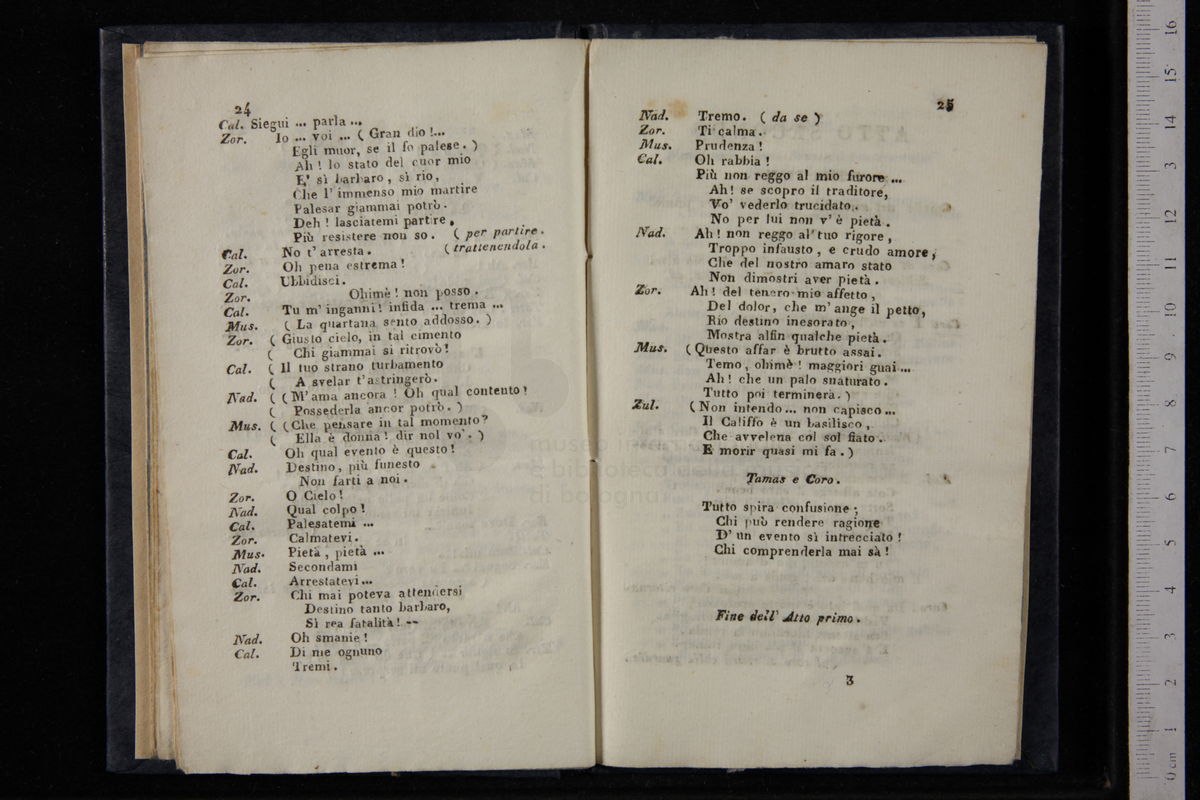 24
Cal. Siegui ... parla ...
Zor. Io ... voi ... ( Gran dio !...
Egli muor, se il fo palese. )
Ah ! lo stato del cuor mio
E' sì barbaro, sì rio,
Che l' immenso mio martire
Palesar giammai potrò.
Deh ! lasciatemi partire,
Più resistere non so. ( per partire.
Cal. No t' arresta. ( trattenendola.
Zor. Oh pena estrema !
Cal. Ubbidisci.
Zor. Ohimè ! non posso.
Cal. Tu m' inganni ! infida ... trema ...
Mus. ( La quartana sento addosso. )
Zor. ( Giusto cielo, in tal cimento
( Chi giammai si ritrovò !
Cal. ( Il tuo strano turbamento
( A svelar t' astringerò.
Nad. ( ( M' ama ancora ! Oh qual contento !
( Possederla ancor potrò. )
Mus. ( ( Che pensare in tal momento ?
( Ella è donna ! dir nol vo'. )
Cal. Oh qual evento è questo !
Nad. Destino, più funesto
Non farti a noi.
Zor. O Cielo !
Nad. Qual colpo !
Cal. Palesatemi ...
Zor. Calmatevi.
Mus. Pietà, pietà ...
Nad. Secondami
Cal. Arrestatevi ...
Zor. Chi mai poteva attendersi
Destino tanto barbaro,
Sì rea fatalità ! --
Nad. Oh smanie !
Cal. Di me ognuno
Tremi.
25
Nad. Tremo. ( da se )
Zor. Ti calma.
Mus. Prudenza !
Cal. Oh rabbia !
Più non reggo al mio furore ...
Ah ! se scopro il traditore,
Vo' vederlo trucidato,
No per lui non v' è pietà.
Nad. Ah ! non reggo al tuo rigore,
Troppo infausto, e crudo amore,
Che del nostro amaro stato
Non dimostri aver pietà.
Zor. Ah ! del tenero mio affetto,
Del dolor, che m' ange il petto,
Rio destino inesorato,
Mostra alfin qualche pietà.
Mus. ( Questo affar è brutto assai.
Temo, ohimè ! maggiori guai ...
Ah ! che un palo snaturato.
Tutto poi terminerà. )
Zul. ( Non intendo ... non capisco ...
Il Califfo è un basilisco,
Che avvelena col sol fiato.
E morir quasi mi fa. )
Tamas e Coro.
Tutto spira confusione ;
Chi può rendere ragione
D' un evento sì intrecciato !
Chi comprenderla mai sà !
Fine dell' Atto primo.
3
museo
e biblioteca della
di bologna